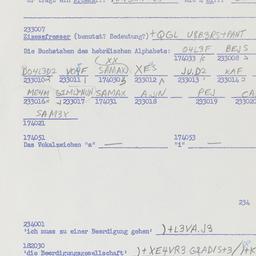 233007
Eisesfresser (benutzt? Bedeutung?) )+QGL URB3RS+PANT
Die Buchstaben des hebräischen Alphabets: O4L3F BEJS
174033 233008
DO4L3D2 VO4F SAMAX XE'S JU.D2 KAF
233010 233011 174030 233012 233013 233014
MEHM SAMAX AJIN PEJ
233016 233017 174031 233018 233019 23302
SAM3X
174021
174051 174053
Das Vokalzeichen "a" — "i" —
234
234001
'ich muss zu einer Beerdigung gehen' )+L3VA.J3
182030
'die Beerdigungsgesellschaft' )+XE4VR3 GRADIS+3/)+K